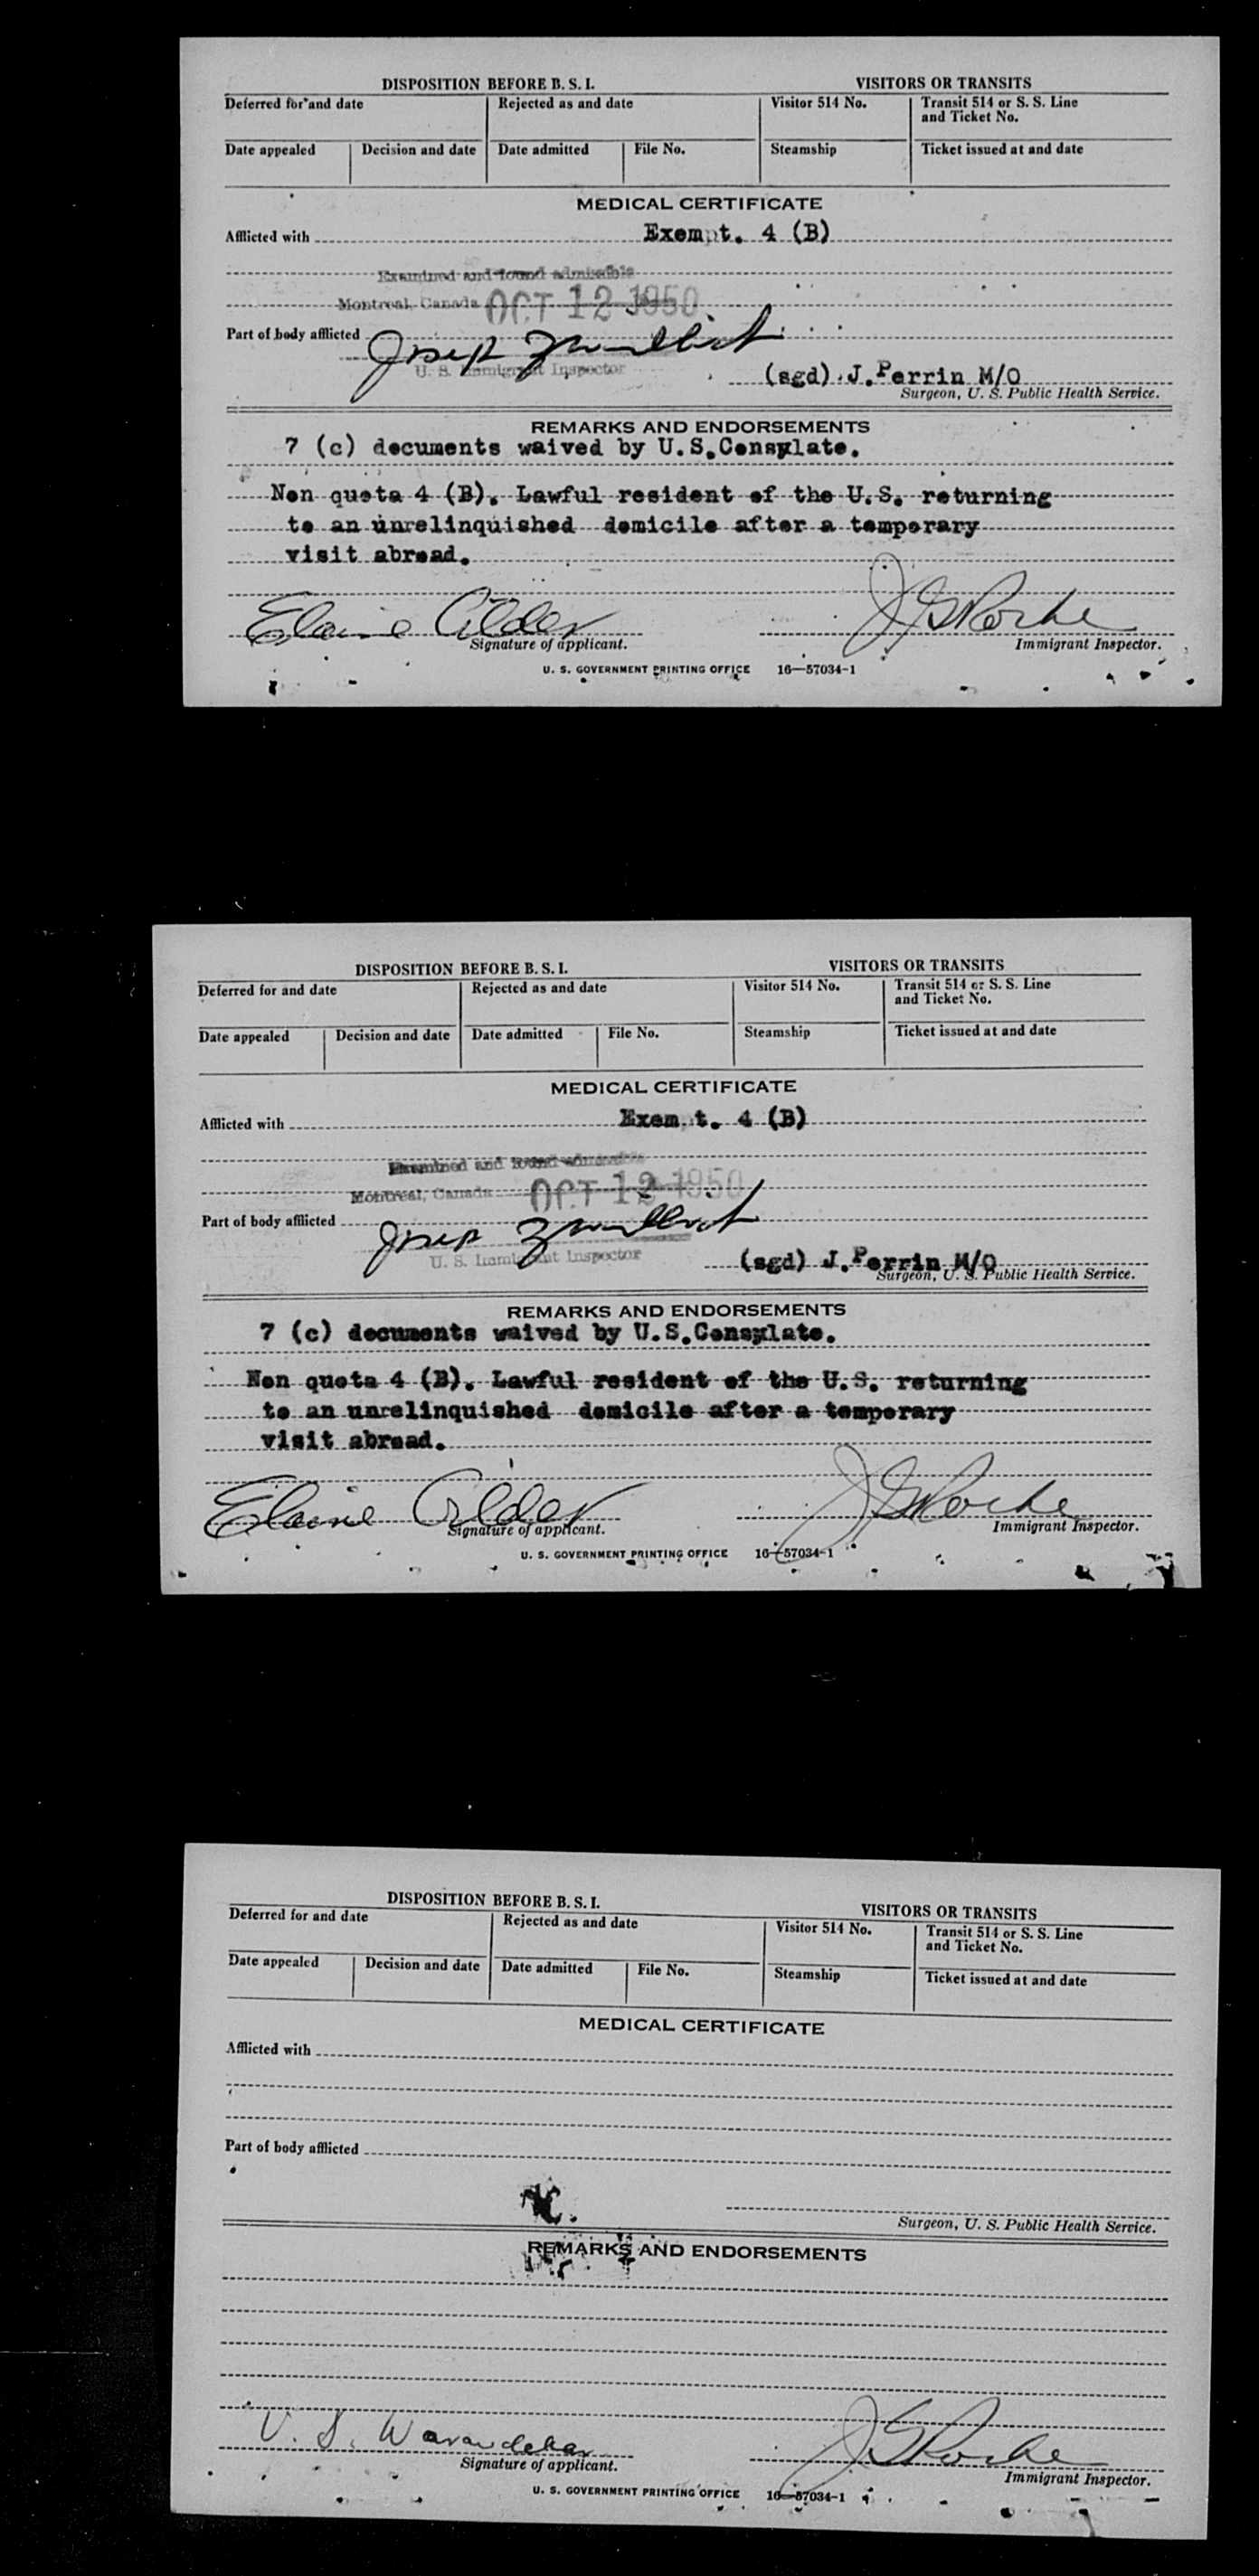 DISPOSITION BEFORE B. S. I. VISITORS OR TRANSITS
Deferred for and date Rejected as and date Visitor 514 No. Transit 514 or S. S. Line
and Ticket No.
Date appealed Decision and date Date admitted File No. Steamship Ticket issued at and date
MEDICAL CERTIFICATE
Afflicted with Exempt. 4 (B)
Examined and found admissible
Montreal, Canada OCT 12 1950
Part of body afflicted
Joseph
U. S. Immigrant Inspector
(sgd) J.Perrin M/O
Surgeon, U. S. Public Health Service.
REMARKS AND ENDORSEMENTS
7 (c) documents waived by U.S.Consylate.
Non quota 4 (B). Lawful resident of the U.S. returning
to an unrelinquished domicile after a temporary
visit abroad.
Elaine Alder J G Roche
Signature of applicant. Immigrant Inspector.
U. S. GOVERNMENT PRINTING OFFICE 16—57034-1
DISPOSITION BEFORE B. S. I. VISITORS OR TRANSITS
Deferred for and date Rejected as and date Visitor 514 No. Transit 514 or S. S. Line
and Ticket No.
Date appealed Decision and date Date admitted File No. Steamship Ticket issued at and date
MEDICAL CERTIFICATE
Afflicted with Exem t. 4 (B)
Examined and found admissible
Montreal, Canada OCT 12 1950
Part of body afflicted
Joseph
U. S. Immigrant Inspector
(sgd) J.Perrin M/O
Surgeon, U. S. Public Health Service.
REMARKS AND ENDORSEMENTS
7 (c) documents waived by U.S.Consylate.
Non quota 4 (B). Lawful resident of the U.S. returning
to an unrelinquished domicile after a temporary
visit abroad.
Elaine Alder J G Roche
Signature of applicant. Immigrant Inspector.
U. S. GOVERNMENT PRINTING OFFICE 16—57034-1
DISPOSITION BEFORE B. S. I. VISITORS OR TRANSITS
Deferred for and date Rejected as and date Visitor 514 No. Transit 514 or S. S. Line
and Ticket No.
Date appealed Decision and date Date admitted File No. Steamship Ticket issued at and date
MEDICAL CERTIFICATE
Afflicted with
Part of body afflicted
Surgeon, U. S. Public Health Service.
REMARKS AND ENDORSEMENTS
V. S. Warandekar J G Roche
Signature of applicant. Immigrant Inspector.
U. S. GOVERNMENT PRINTING OFFICE 16—57034-1